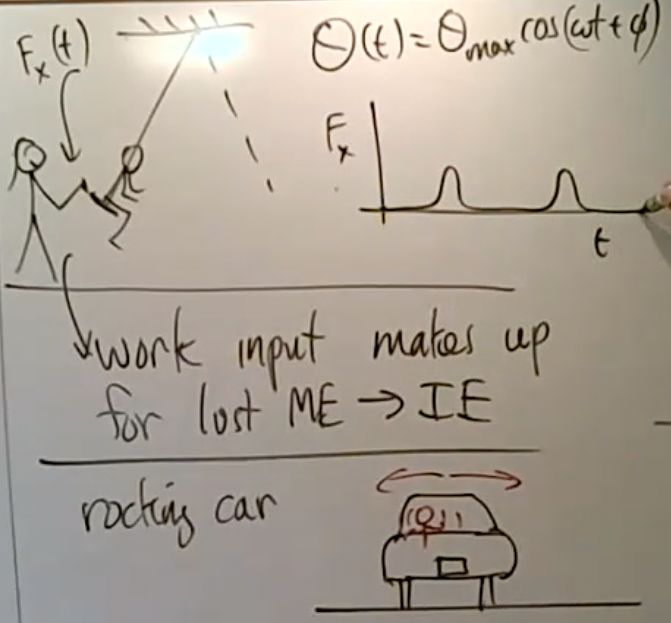 F_x(t)
Θ(t) = Θ_max cos(ωt + φ)
F_x
t
work input makes up
for lost ME → IE
rocking car